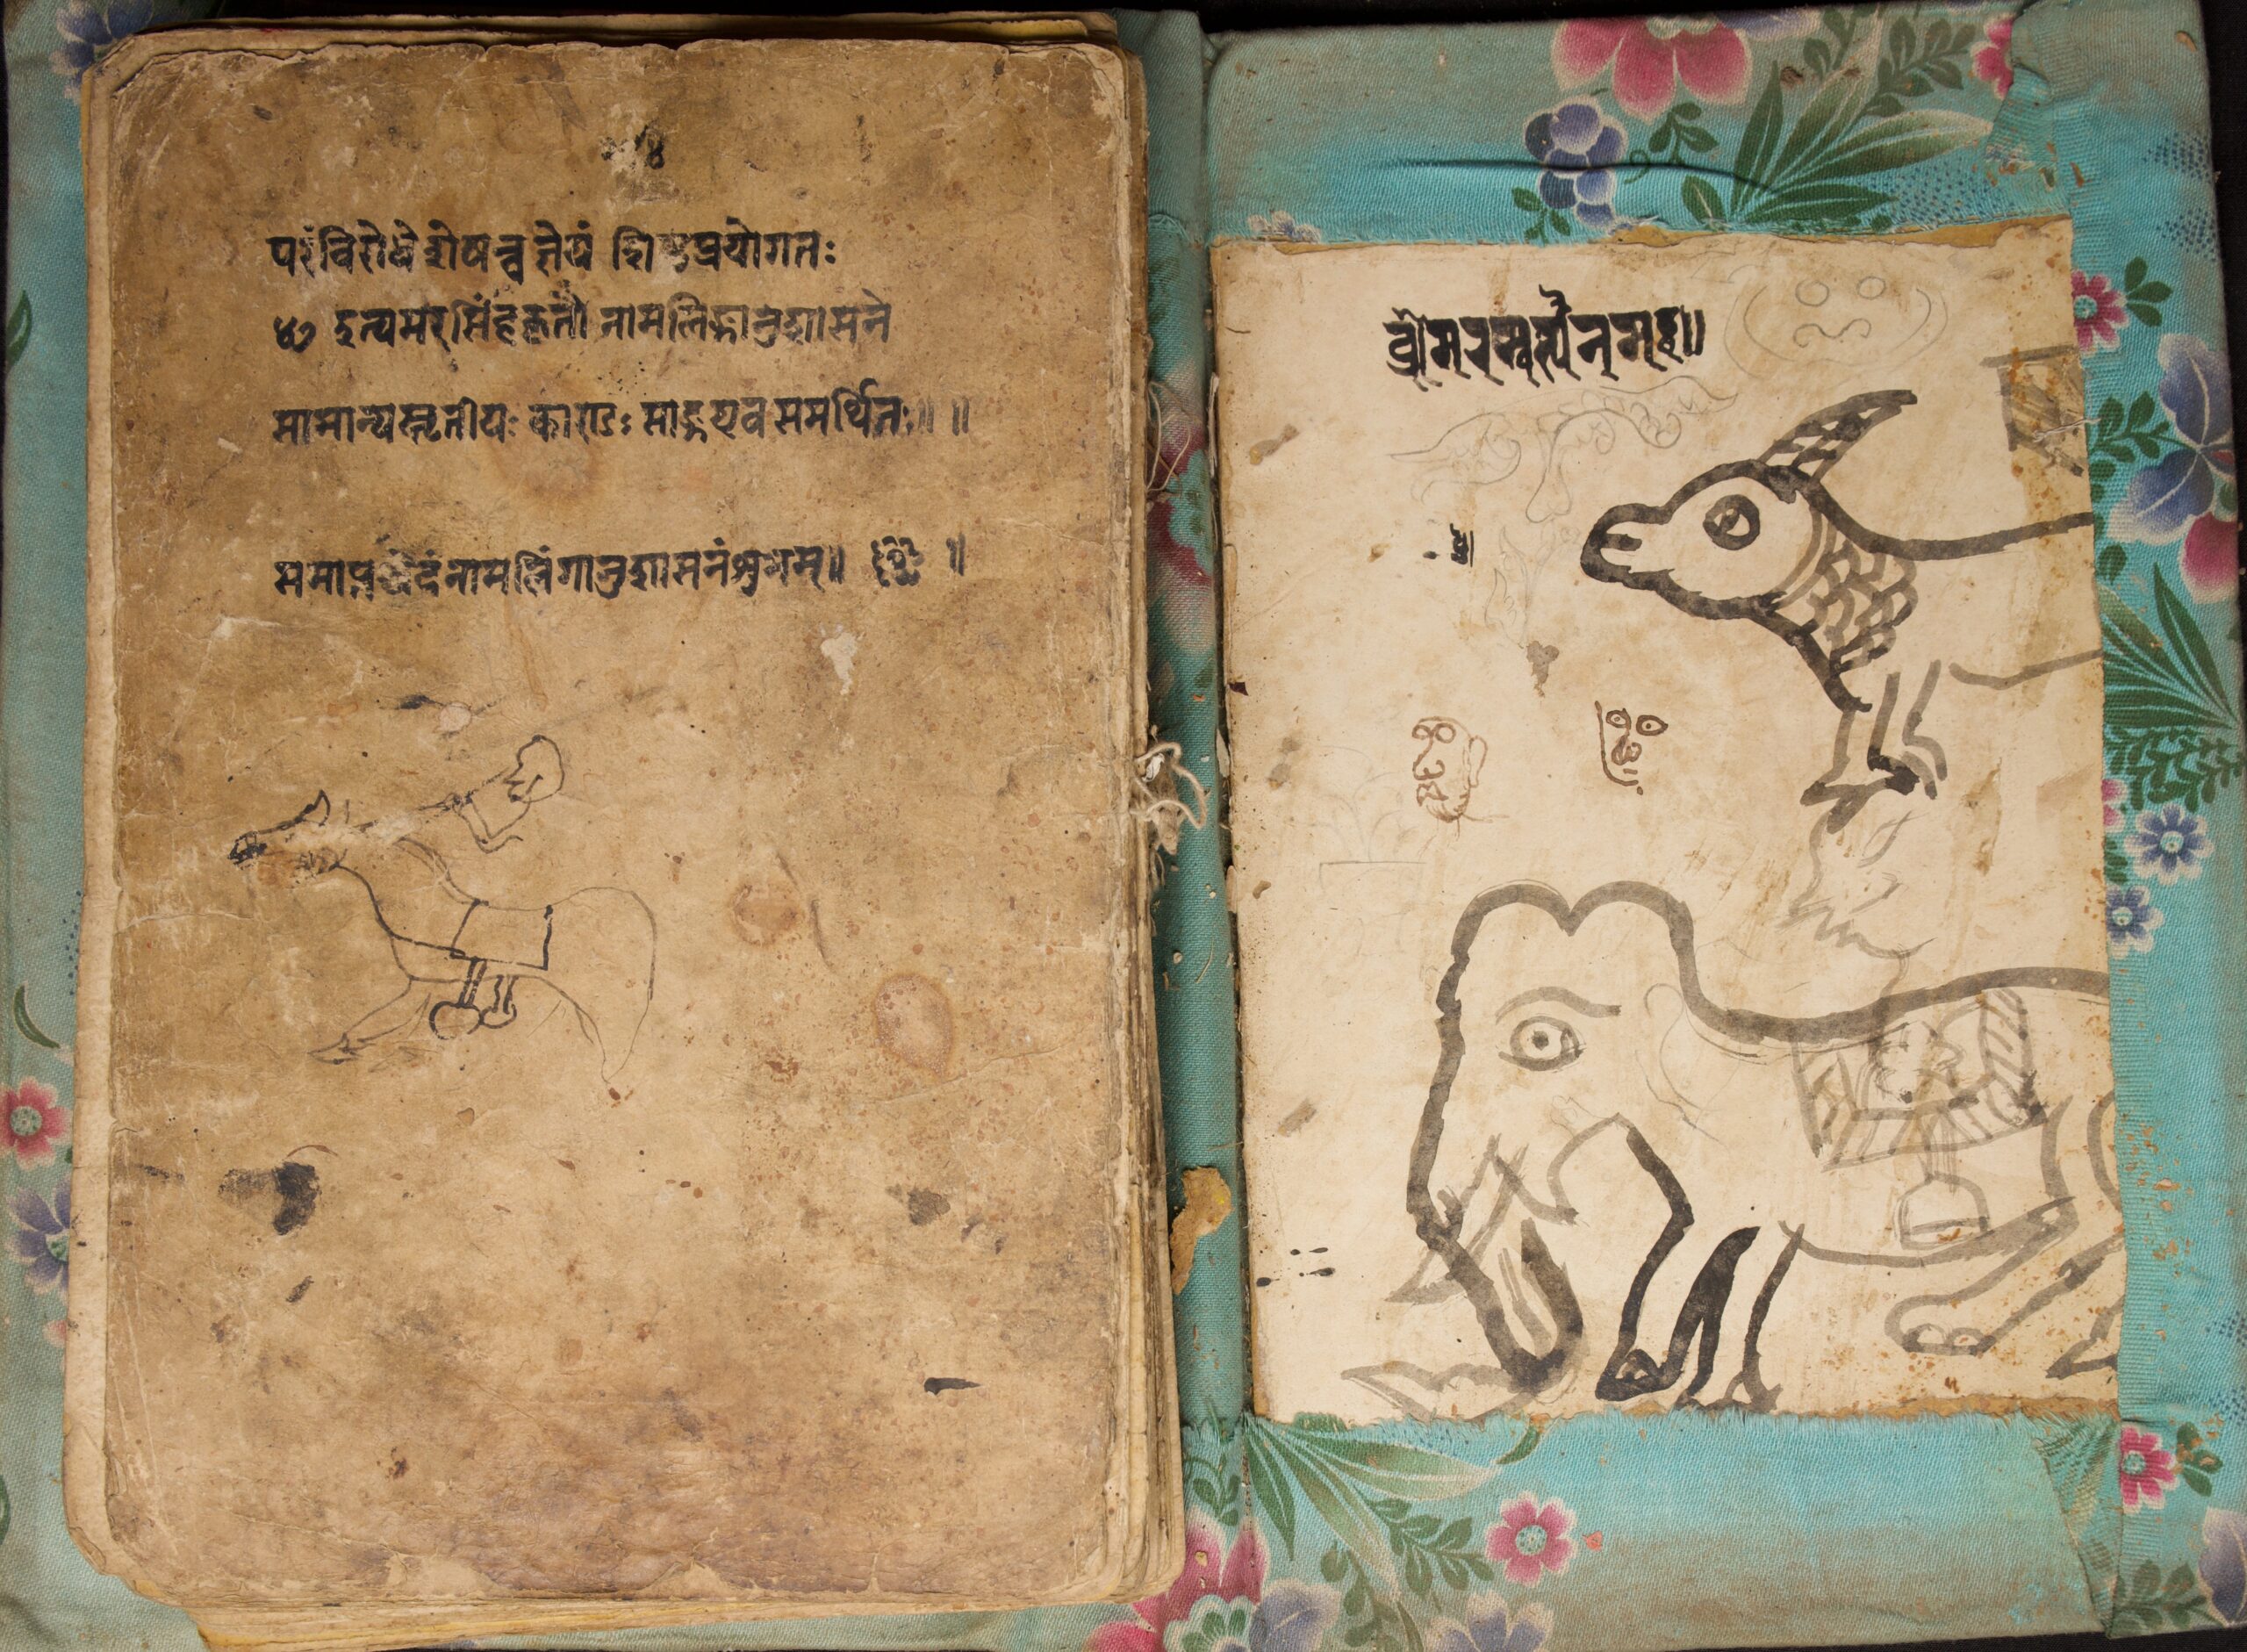 परंविरोधे शेषन्तु ज्ञेयं शिष्टप्रयोगतः
४७ इत्यमरसिंहकृतौ नामलिङ्गानुशासने
सामान्यस्तृतीयः काण्डः साङ्गएवसमर्थितः॥ ॥
समाप्तञ्चेदंनामलिंगानुशासनंशुभम्॥ ॥